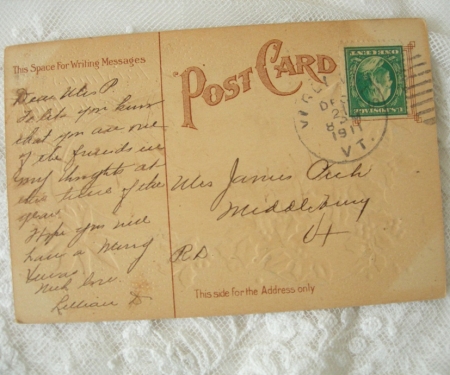 This Space For Writing Messages
POST CARD
Dear Mrs P
To let you know
that you are one
of the friends in
my thoughts at
this time of the
year
Hope you will
have a Merry
With love
Lillian D
21
1911
VT.
ONE CENT
Mrs James
Middlebury
Vt
RD
This side for the Address only